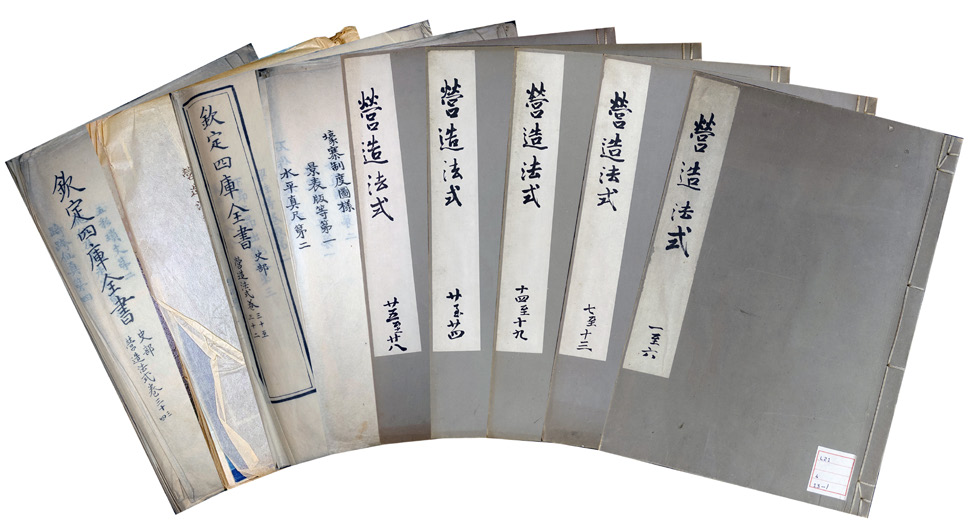 營造法式
一至六
營造法式
七至十三
營造法式
十四至十九
營造法式
廿至廿四
營造法式
廿五至廿八
壕寨制度圖樣
景表版等第一
水平真尺第二
欽定四庫全書
史部
營造法式卷三十至
三十二
欽定四庫全書
史部
營造法式卷三十四上